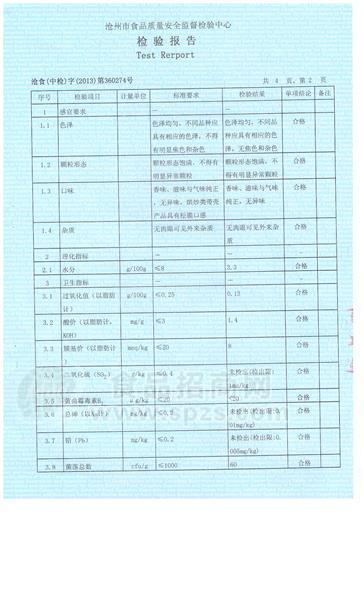 沧州市食品质量安全监督检验中心
检 验 报 告
Test Rerport
沧食(中检)字(2013)第360274号 共 4 页、第 2 页
序号 检验项目 计量单位 标准要求 检验结果 单项结论 备注
1 感官要求 — —
1.1 色泽 色泽均匀、不同品种应 色泽均匀、不同品 合格
具有相应的色泽、不得 种应具有相应的色
有明显焦色和杂色 泽、无焦色和杂色
1.2 颗粒形态 颗粒形态饱满、不得有 颗粒形态饱满、不 合格
明显异常颗粒 得有明显异常颗粒
1.3 口味 香味、滋味与气味纯正 香味、滋味与气味 合格
、无异味、烘炒类带壳 纯正、无异味
产品具有松脆口感
1.4 杂质 无肉眼可见外来杂质 无肉眼可见外来杂 合格
质
2 理化指标 — —
2.1 水分 g/100g ≤8 3.3 合格
3 卫生指标 — —
3.1 过氧化值(以脂肪 g/100g ≤0.25 0.13 合格
计)
3.2 酸价(以脂肪计, mg/g ≤3 1.4 合格
KOH)
3.3 羰基价(以脂肪计 meq/kg ≤20 8 合格
)
3.4 二氧化硫(SO₂) g/kg ≤0.4 未检出(检出限: 合格
1mg/kg)
3.5 黄曲霉毒素B₁ ≤20 <20 合格
3.6 总砷(以As计) mg/kg 未检出(检出限:0. 合格
01mg/kg)
3.7 铅(Pb) mg/kg ≤0.2 未检出(检出限:0. 合格
005mg/kg)
3.8 菌落总数 cfu/g ≤1000 60 合格
食品招商网
www.spzs.com